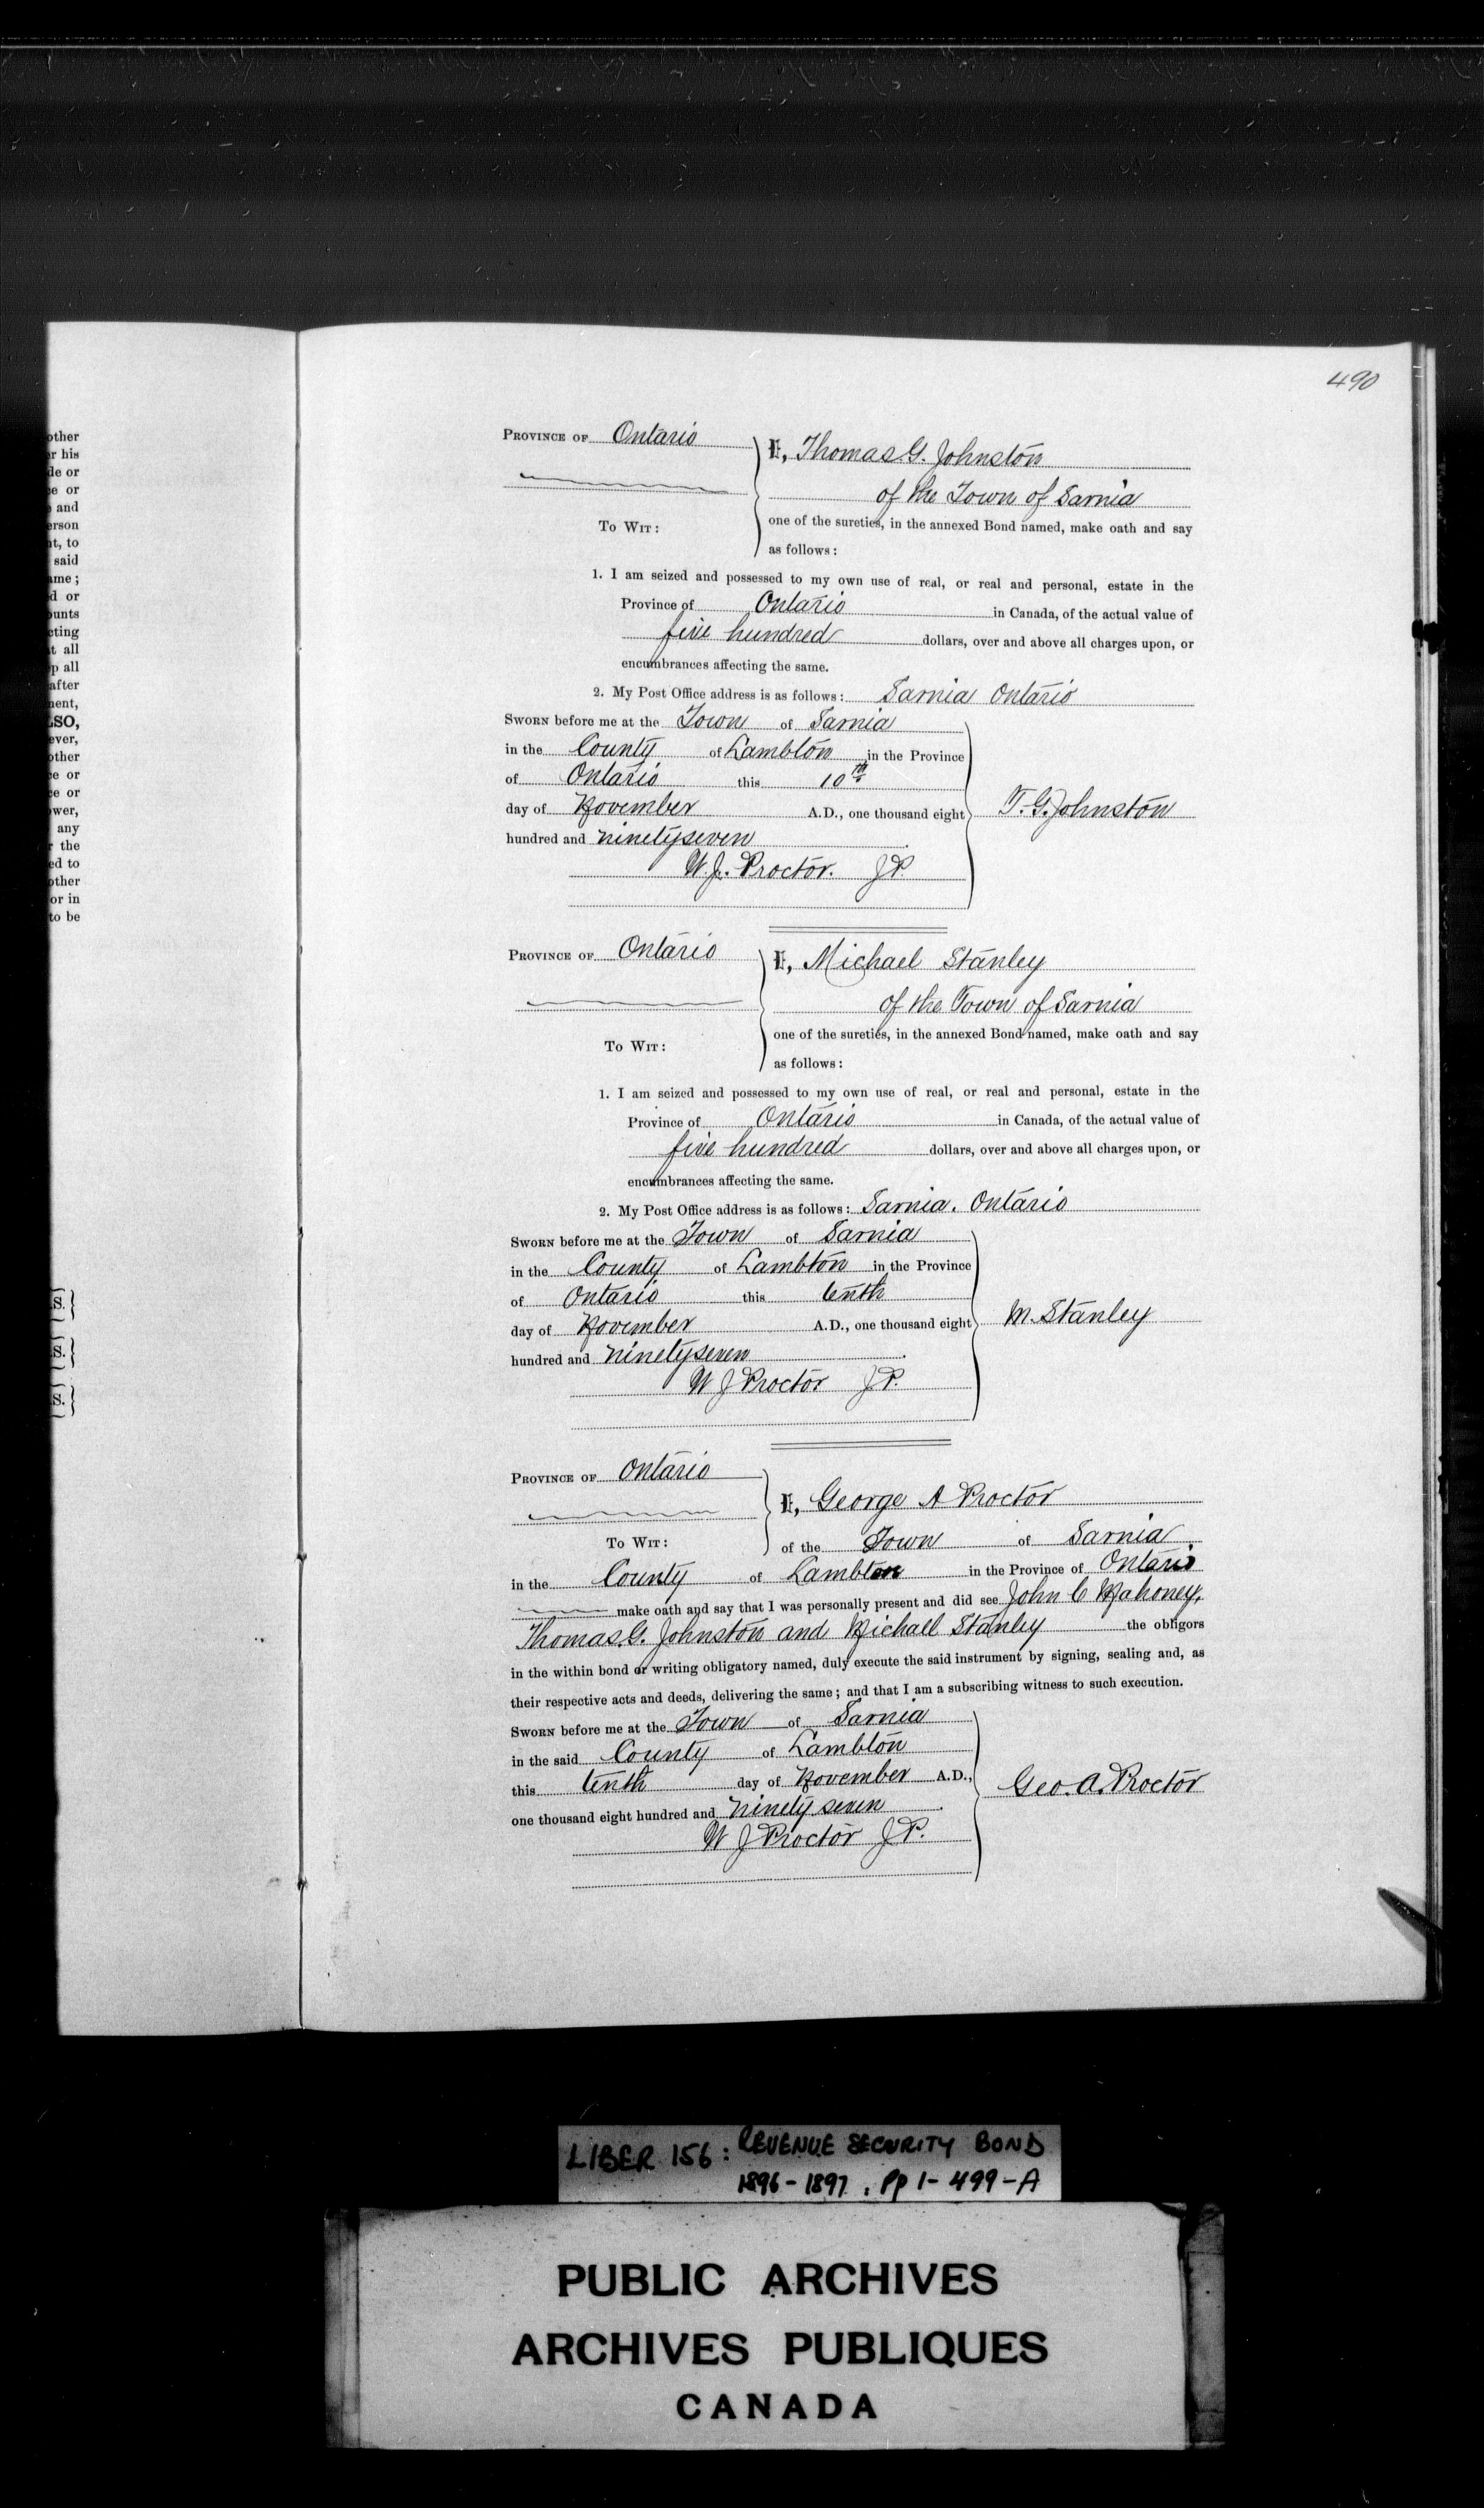 490
other
r his
de or
e or
and
erson
nt, to
said
ame ;
d or
ounts
cting
t all
p all
after
ment,
LSO,
ever,
other
ce or
ce or
ower,
any
r the
ed to
other
or in
to be
S.}
S.}
S.}
PROVINCE OF Ontario
I, Thomas G. Johnston
of the Town of Sarnia
TO WIT:
one of the sureties, in the annexed Bond named, make oath and say
as follows:
1. I am seized and possessed to my own use of real, or real and personal, estate in the
Province of Ontario in Canada, of the actual value of
five hundred dollars, over and above all charges upon, or
encumbrances affecting the same.
2. My Post Office address is as follows: Sarnia Ontario
SWORN before me at the Town of Sarnia
in the County of Lambton in the Province
of Ontario this 10th
day of November A.D., one thousand eight
hundred and ninetyseven.
T. G. Johnston
W. J. Proctor. J P.
PROVINCE OF Ontario
I, Michael Stanley
of the Town of Sarnia
TO WIT:
one of the sureties, in the annexed Bond named, make oath and say
as follows:
1. I am seized and possessed to my own use of real, or real and personal, estate in the
Province of Ontario in Canada, of the actual value of
five hundred dollars, over and above all charges upon, or
encumbrances affecting the same.
2. My Post Office address is as follows: Sarnia. Ontario
SWORN before me at the Town of Sarnia
in the County of Lambton in the Province
of Ontario this tenth
day of November A.D., one thousand eight
hundred and ninetyseven.
M. Stanley
W J Proctor J.P.
PROVINCE OF Ontario
I, George A Proctor
TO WIT:
of the Town of Sarnia
in the County of Lambton in the Province of Ontario
make oath and say that I was personally present and did see John C Mahoney,
Thomas G. Johnston and Michael Stanley the obligors
in the within bond or writing obligatory named, duly execute the said instrument by signing, sealing and, as
their respective acts and deeds, delivering the same; and that I am a subscribing witness to such execution.
SWORN before me at the Town of Sarnia
in the said County of Lambton
this tenth day of November A.D.,
one thousand eight hundred and ninety seven.
Geo. A. Proctor
W J Proctor J P.
LIBER 156: REVENUE SECURITY BOND
1896-1897, Pp 1-499-A
PUBLIC ARCHIVES
ARCHIVES PUBLIQUES
CANADA